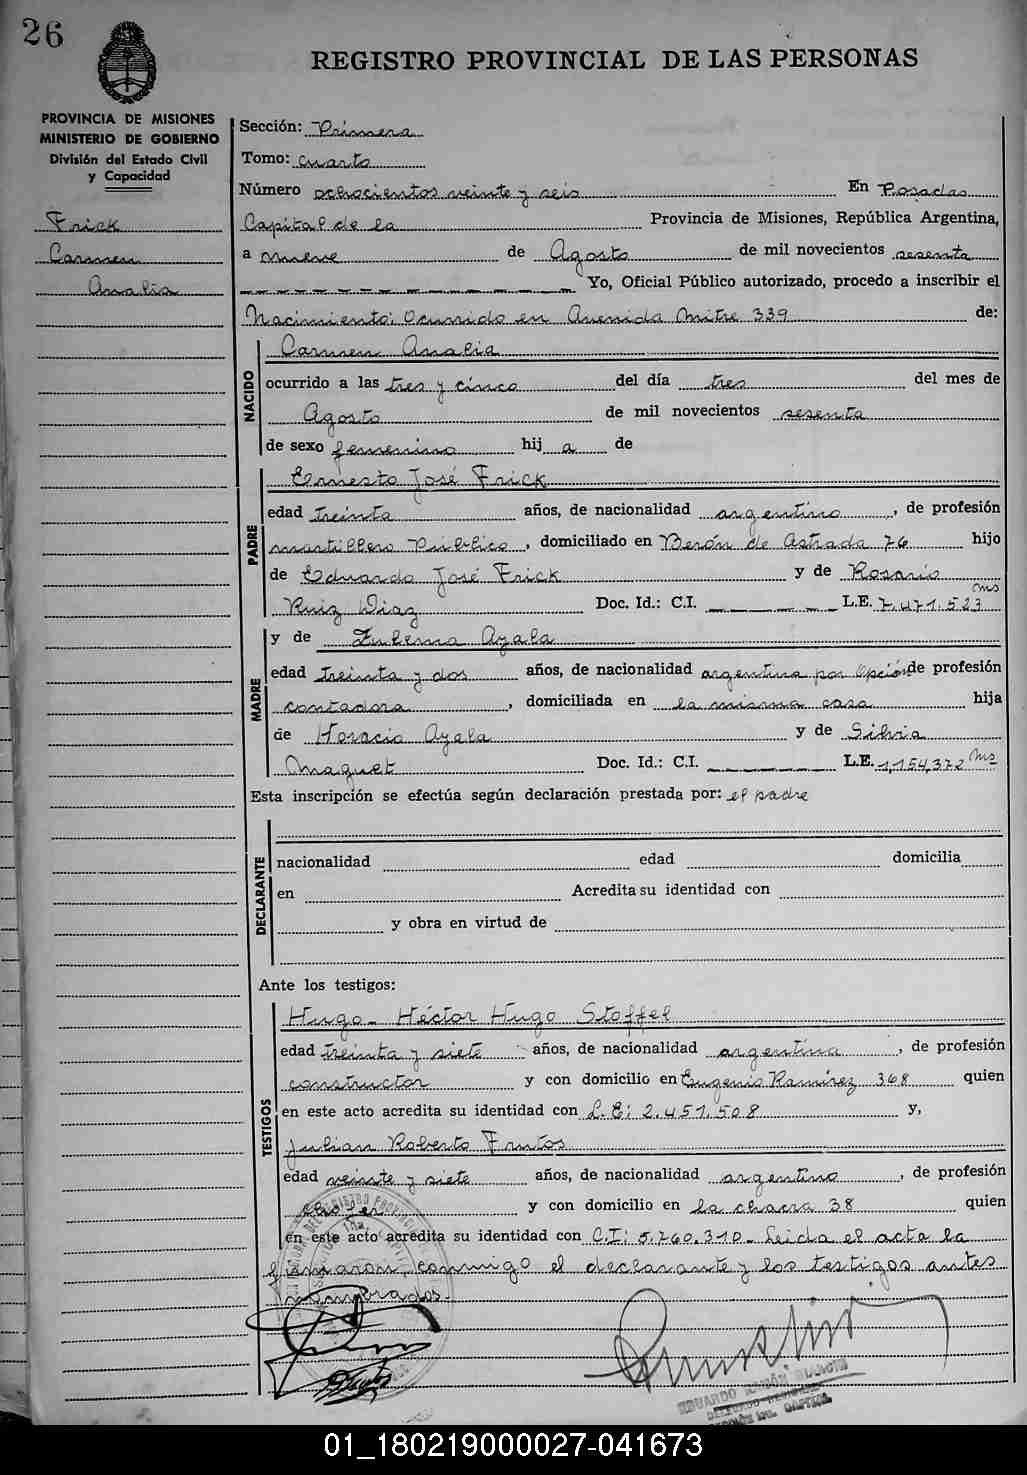 26
REGISTRO PROVINCIAL DE LAS PERSONAS
PROVINCIA DE MISIONES
MINISTERIO DE GOBIERNO
División del Estado Civil
y Capacidad
Frick
Carmen
Analia
Sección: Primera
Tomo: cuarto
Número ochocientos veinte y seis En Posadas
Capital de la Provincia de Misiones, República Argentina,
a nueve de Agosto de mil novecientos sesenta
Yo, Oficial Público autorizado, procedo a inscribir el
Nacimiento: Ocurrido en Avenida Mitre 339 de:
NACIDO
Carmen Analia
ocurrido a las tres y cinco del día tres del mes de
Agosto de mil novecientos sesenta
de sexo femenino hij a de
PADRE
Ernesto José Frick
edad treinta años, de nacionalidad argentino, de profesión
martillero Público, domiciliado en Berón de Astrada 76 hijo
de Eduardo José Frick y de Rosario
Ruiz Diaz Doc. Id.: C.I. L.E. 7.471.523 ms
MADRE
y de Zulema Ayala
edad treinta y dos años, de nacionalidad argentina por Opción de profesión
contadora, domiciliada en la misma casa hija
de Horacio Ayala y de Silvia
Maguet Doc. Id.: C.I. L.E. 1,154,372 ms
Esta inscripción se efectúa según declaración prestada por: el padre
DECLARANTE
nacionalidad edad domicilia
en Acredita su identidad con
y obra en virtud de
Ante los testigos:
TESTIGOS
Hugo- Héctor Hugo Stoffel
edad treinta y siete años, de nacionalidad argentina, de profesión
constructor y con domicilio en Eugenio Ramirez 368 quien
en este acto acredita su identidad con L.E: 2.451.508 y,
Julian Roberto Frutos
edad veinte y siete años, de nacionalidad argentino, de profesión
chofer y con domicilio en la chacra 38 quien
en este acto acredita su identidad con C.I: 5.760.310- Leida el acta la
firmaron, conmigo el declarante y los testigos antes
nombrados.
EDUARDO RAMÓN
01_180219000027-041673